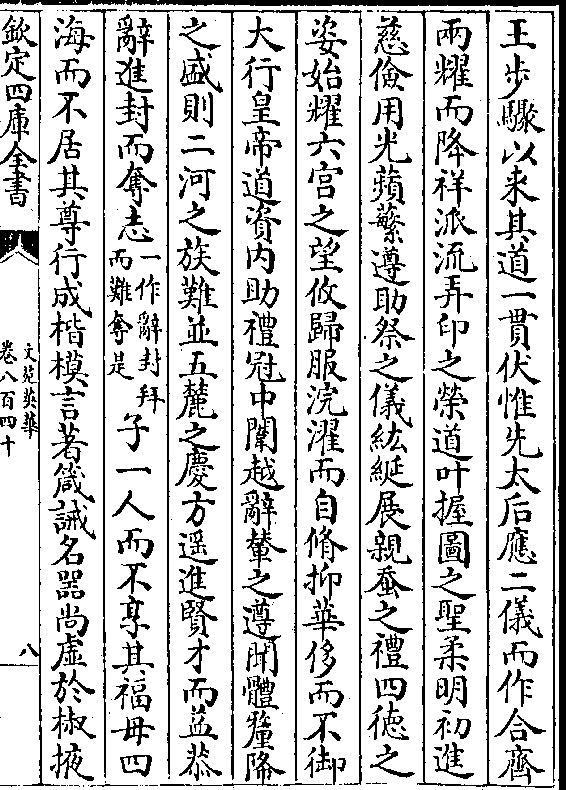 王步驟以来其道一貫伏惟先太后應二儀而作合齊
兩耀而降祥派流弄印之榮道叶握圖之聖柔明初進
慈儉用光蘋蘩遵助祭之儀紘綖展親蚕之禮四徳之
姿始耀六宫之望攸歸服浣濯而自脩抑華侈而不御
大行皇帝道資内助禮冠中闈越辭輦之遵聞體釐降
之盛則二河之族難並五麓之慶方遥進賢才而益恭
辭進封而奪志
一作辭封拜
而難奪是
子一人而不享其福母四
海而不居其尊行成楷模言著箴誡名器尚虚於椒掖
欽定四庫全書
文苑英華
卷八百四十
八